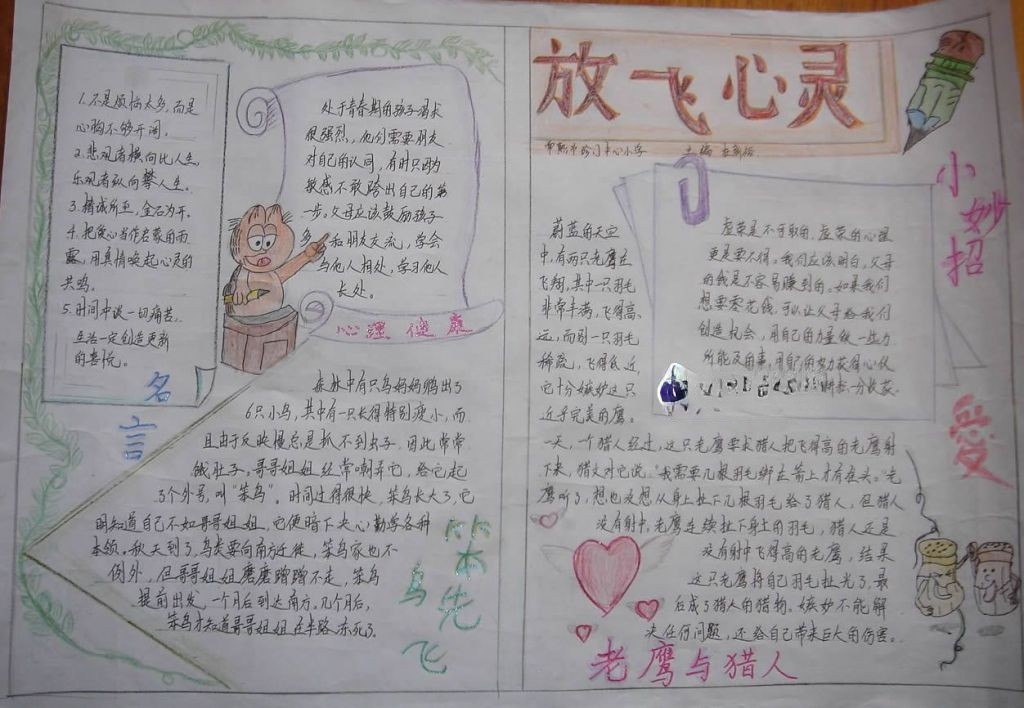 1.不是烦恼太多,而是
心胸不够开阔。
2.悲观者横向比人生,
乐观者纵向攀人生。
3.精诚所至,金石为开。
4.把爱心当作启蒙的雨
露,用真情唤起心灵的
共鸣。
5.时间冲淡一切痛苦,
生活一定创造更新
的喜悦。
名言
处于青春期的孩子渴求
很强烈,他们需要朋友
对自己的认同,有时只因为
敏感不敢跨出自己的第
一步。父母应该鼓励孩子
多和朋友交流,学会
与他人相处,学习他人
长处。
心理健康
森林中有只鸟妈妈孵出了
6只小鸟,其中有一只长得特别瘦小,而
且由于反映慢总是抓不到虫子,因此常常
饿肚子。哥哥姐姐经常嘲弄它,给它起
了个外号,叫“笨鸟”。时间过得很快,笨鸟长大了,它
明知道自己不如哥哥姐姐,它便暗下决心勤学各种
本领。秋天到了,鸟类要向南方迁徙,笨鸟家也不
例外,但哥哥姐姐磨磨蹭蹭不走,笨鸟
提前出发,一个月后到达南方。几个月后,
笨鸟才知道哥哥姐姐在半路冻死了。
笨鸟先飞
放飞心灵
中心小学 主编
小妙招
虚荣是不可取的,虚荣的心理
更是要不得。我们应该明白,父母
的钱是不容易赚到的。如果我们
想要零花钱,可以让父母给我们
创造机会,用自己的力量做一些力
所能及的事,用自己的努力获得心仪
一分收获。
蔚蓝的天空
中,有两只老鹰在
飞翔,其中一只羽毛
非常丰满,飞得高
远,而别一只羽毛
稀疏,飞得低近
它十分嫉妒这只
近乎完美的鹰。
一天,一个猎人经过,这只老鹰要求猎人把飞得高的老鹰射
下来,猎人对它说:“我需要几根羽毛绑在箭上才有准头。”老
鹰听了,想也没想从身上扯下几根羽毛给了猎人,但猎人
没有射中,老鹰连续扯下身上的羽毛,猎人还是
没有射中飞得高的老鹰,结果
这只老鹰将自己羽毛扯光了,最
后成了猎人的猎物。嫉妒不能解
决任何问题,还给自己带来巨大的伤害。
老鹰与猎人
爱